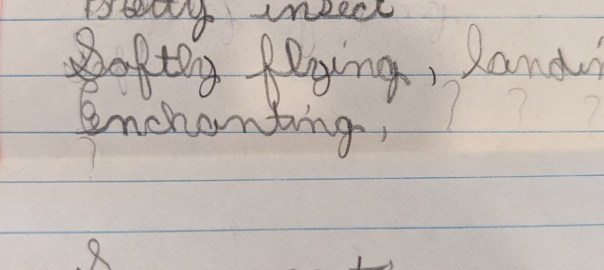 Pretty insect
Softly flying, landin
Enchanting, ? ? ?
?